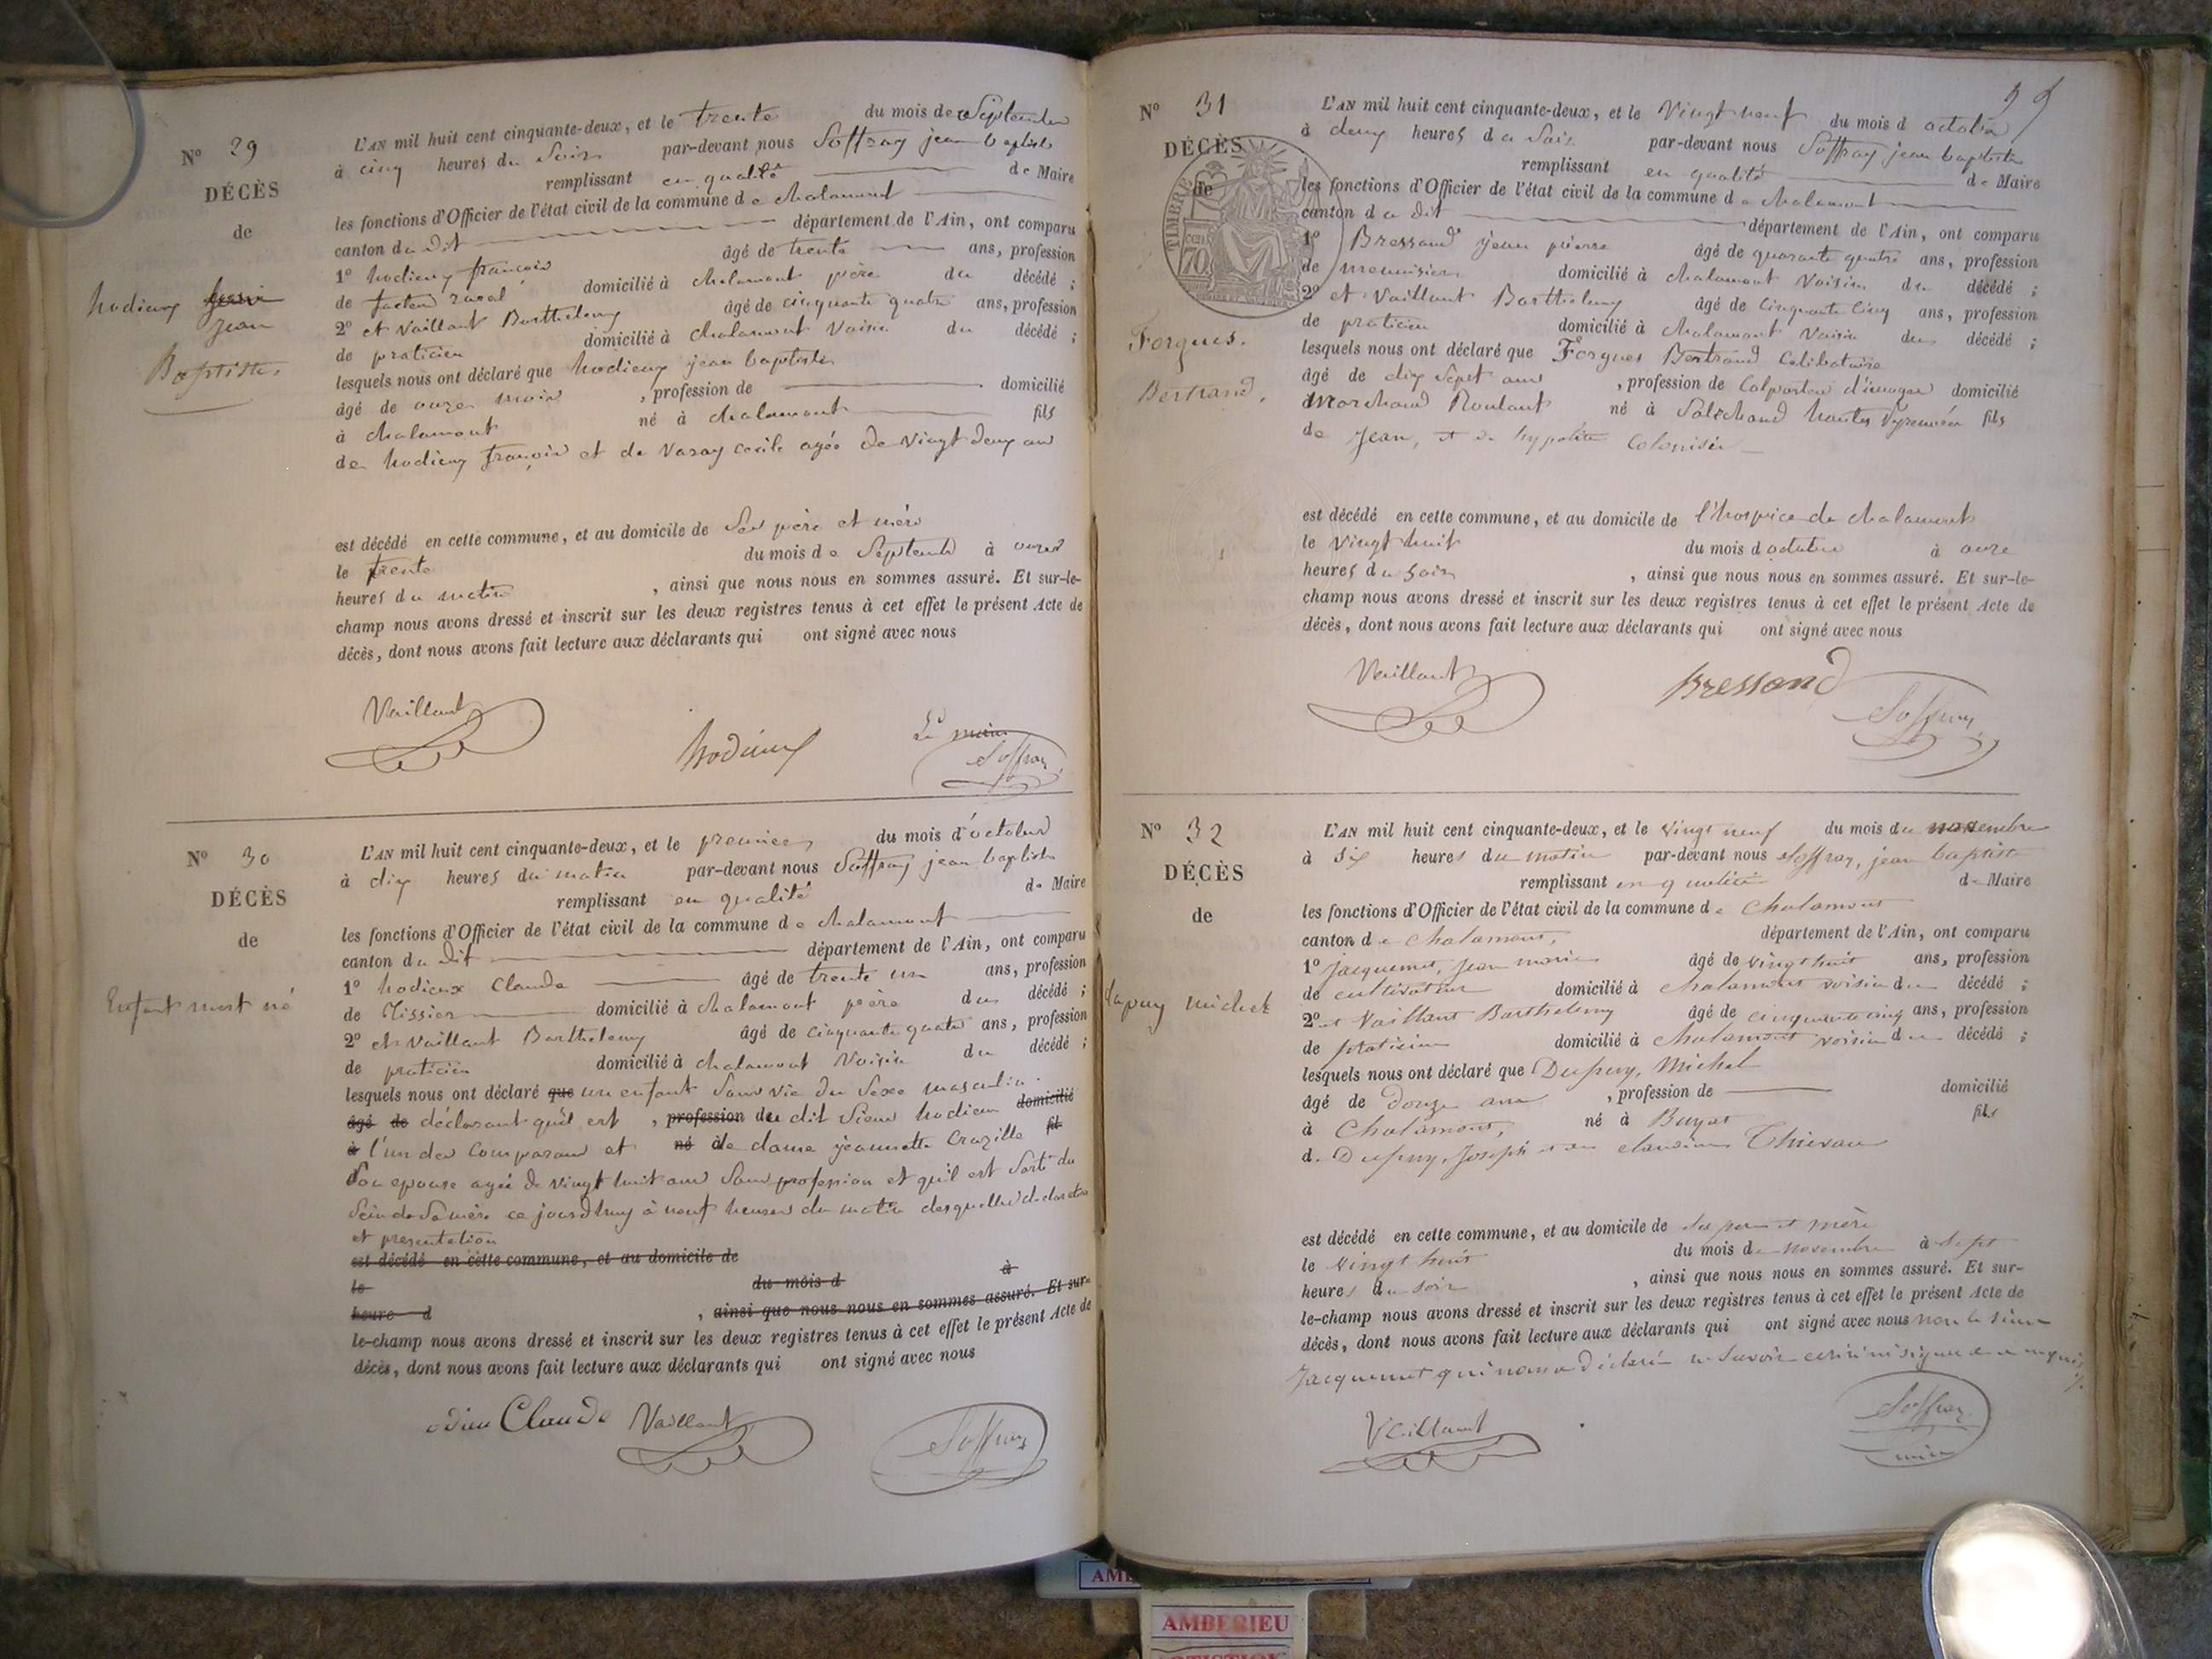 N° 29
DÉCÈS
de
hodieux
Jean
Baptiste
L'AN mil huit cent cinquante-deux, et le trente du mois de Septembre
à cinq heures du Soir par-devant nous Soffray jean baptiste
remplissant en qualité de Maire
les fonctions d'Officier de l'état civil de la commune de chalamont
canton du dit département de l'Ain, ont comparu
1° hodieux françois âgé de trente ans, profession
de facteur rural domicilié à chalamont père du décédé ;
2° et Vaillant Barthelemy âgé de cinquante quatre ans, profession
de praticien domicilié à chalamont Voisin du décédé ;
lesquels nous ont déclaré que hodieux jean baptiste
âgé de onze mois , profession de domicilié
à chalamont né à chalamont fils
de hodieux françois et de Varay Cecile agée de Vingt deux ans
est décédé en cette commune, et au domicile de Ses père et mère
le trente du mois de Septembre à onze
heures du matin , ainsi que nous nous en sommes assuré. Et sur-le-
champ nous avons dressé et inscrit sur les deux registres tenus à cet effet le présent Acte de
décès, dont nous avons fait lecture aux déclarants qui ont signé avec nous
Vaillant hodieux Le maire
Soffray
N° 30
DÉCÈS
de
Enfant mort né
L'AN mil huit cent cinquante-deux, et le premier du mois d'octobre
à dix heures du matin par-devant nous Soffray jean baptiste
remplissant en qualité de Maire
les fonctions d'Officier de l'état civil de la commune de chalamont
canton du dit département de l'Ain, ont comparu
1° hodieux Claude âgé de trente un ans, profession
de Tissier domicilié à chalamont père du décédé ;
2° et Vaillant Barthelemy âgé de cinquante quatre ans, profession
de praticien domicilié à chalamont Voisin du décédé ;
lesquels nous ont déclaré que un enfant Sans vie du Sexe masculin
âgé de déclarant qu'il est , profession du dit Sieur hodieux domicilié
à l'un des Comparans et né à de dame jeannette Crozille fil
Son epouse agée de Vingt huit ans Sans profession et qu'il est Sorti du
Sein de Sa mère ce jourd'huy à neuf heures du matin desquelles declaration
et presentation
est décédé en cette commune, et au domicile de
le du mois d à
heure d , ainsi que nous nous en sommes assuré. Et sur-
le-champ nous avons dressé et inscrit sur les deux registres tenus à cet effet le présent Acte de
décès, dont nous avons fait lecture aux déclarants qui ont signé avec nous
odieu Claude Vaillant Soffray
N° 31
DÉCÈS
de
TIMBRE
70
Forgues.
Bertrand.
L'AN mil huit cent cinquante-deux, et le Vingt neuf du mois d octobre
à deux heures du Soir par-devant nous Soffray jean baptiste
remplissant en qualité de Maire
les fonctions d'Officier de l'état civil de la commune de chalamont
canton du dit département de l'Ain, ont comparu
1° Bressand jean pierre âgé de quarante quatre ans, profession
de menuisier domicilié à chalamont Voisin du décédé ;
2° et Vaillant Barthelemy âgé de cinquante cinq ans, profession
de praticien domicilié à chalamont Voisin du décédé ;
lesquels nous ont déclaré que Forgues Bertrand Celibataire
âgé de dix Sept ans , profession de Colporteur d'images domicilié
Marchand Roulant né à Salechand hautes Pyrennées fils
de Jean, et de hypolite
est décédé en cette commune, et au domicile de l'hospice de chalamont
le Vingt huit du mois d octobre à onze
heures du Soir , ainsi que nous nous en sommes assuré. Et sur-le-
champ nous avons dressé et inscrit sur les deux registres tenus à cet effet le présent Acte de
décès, dont nous avons fait lecture aux déclarants qui ont signé avec nous
Vaillant Bressand Soffray
N° 32
DÉCÈS
de
Dupuy michel
L'AN mil huit cent cinquante-deux, et le Vingt neuf du mois de novembre
à Six heures du matin par-devant nous Soffray, jean baptiste
remplissant en qualité de Maire
les fonctions d'Officier de l'état civil de la commune de Chalamont
canton de Chalamont, département de l'Ain, ont comparu
1° Jacquemet, Jean marie âgé de vingt huit ans, profession
de cultivateur domicilié à Chalamont voisin du décédé ;
2° et Vaillant Barthelemy âgé de cinquante cinq ans, profession
de praticien domicilié à Chalamont voisin du décédé ;
lesquels nous ont déclaré que Dupuy, Michel
âgé de douze ans , profession de domicilié
à Chalamont, né à Buyat fils
de Dupuy, Joseph et de claudine Thievan
est décédé en cette commune, et au domicile de Ses père et mère
le Vingt huit du mois de novembre à Sept
heures du soir , ainsi que nous nous en sommes assuré. Et sur-
le-champ nous avons dressé et inscrit sur les deux registres tenus à cet effet le présent Acte de
décès, dont nous avons fait lecture aux déclarants qui ont signé avec nous non le sieur
Jacquemet qui nous a déclaré ne Savoir ecrire ni signer de ce requis
Vaillant Soffray
AMBERIEU